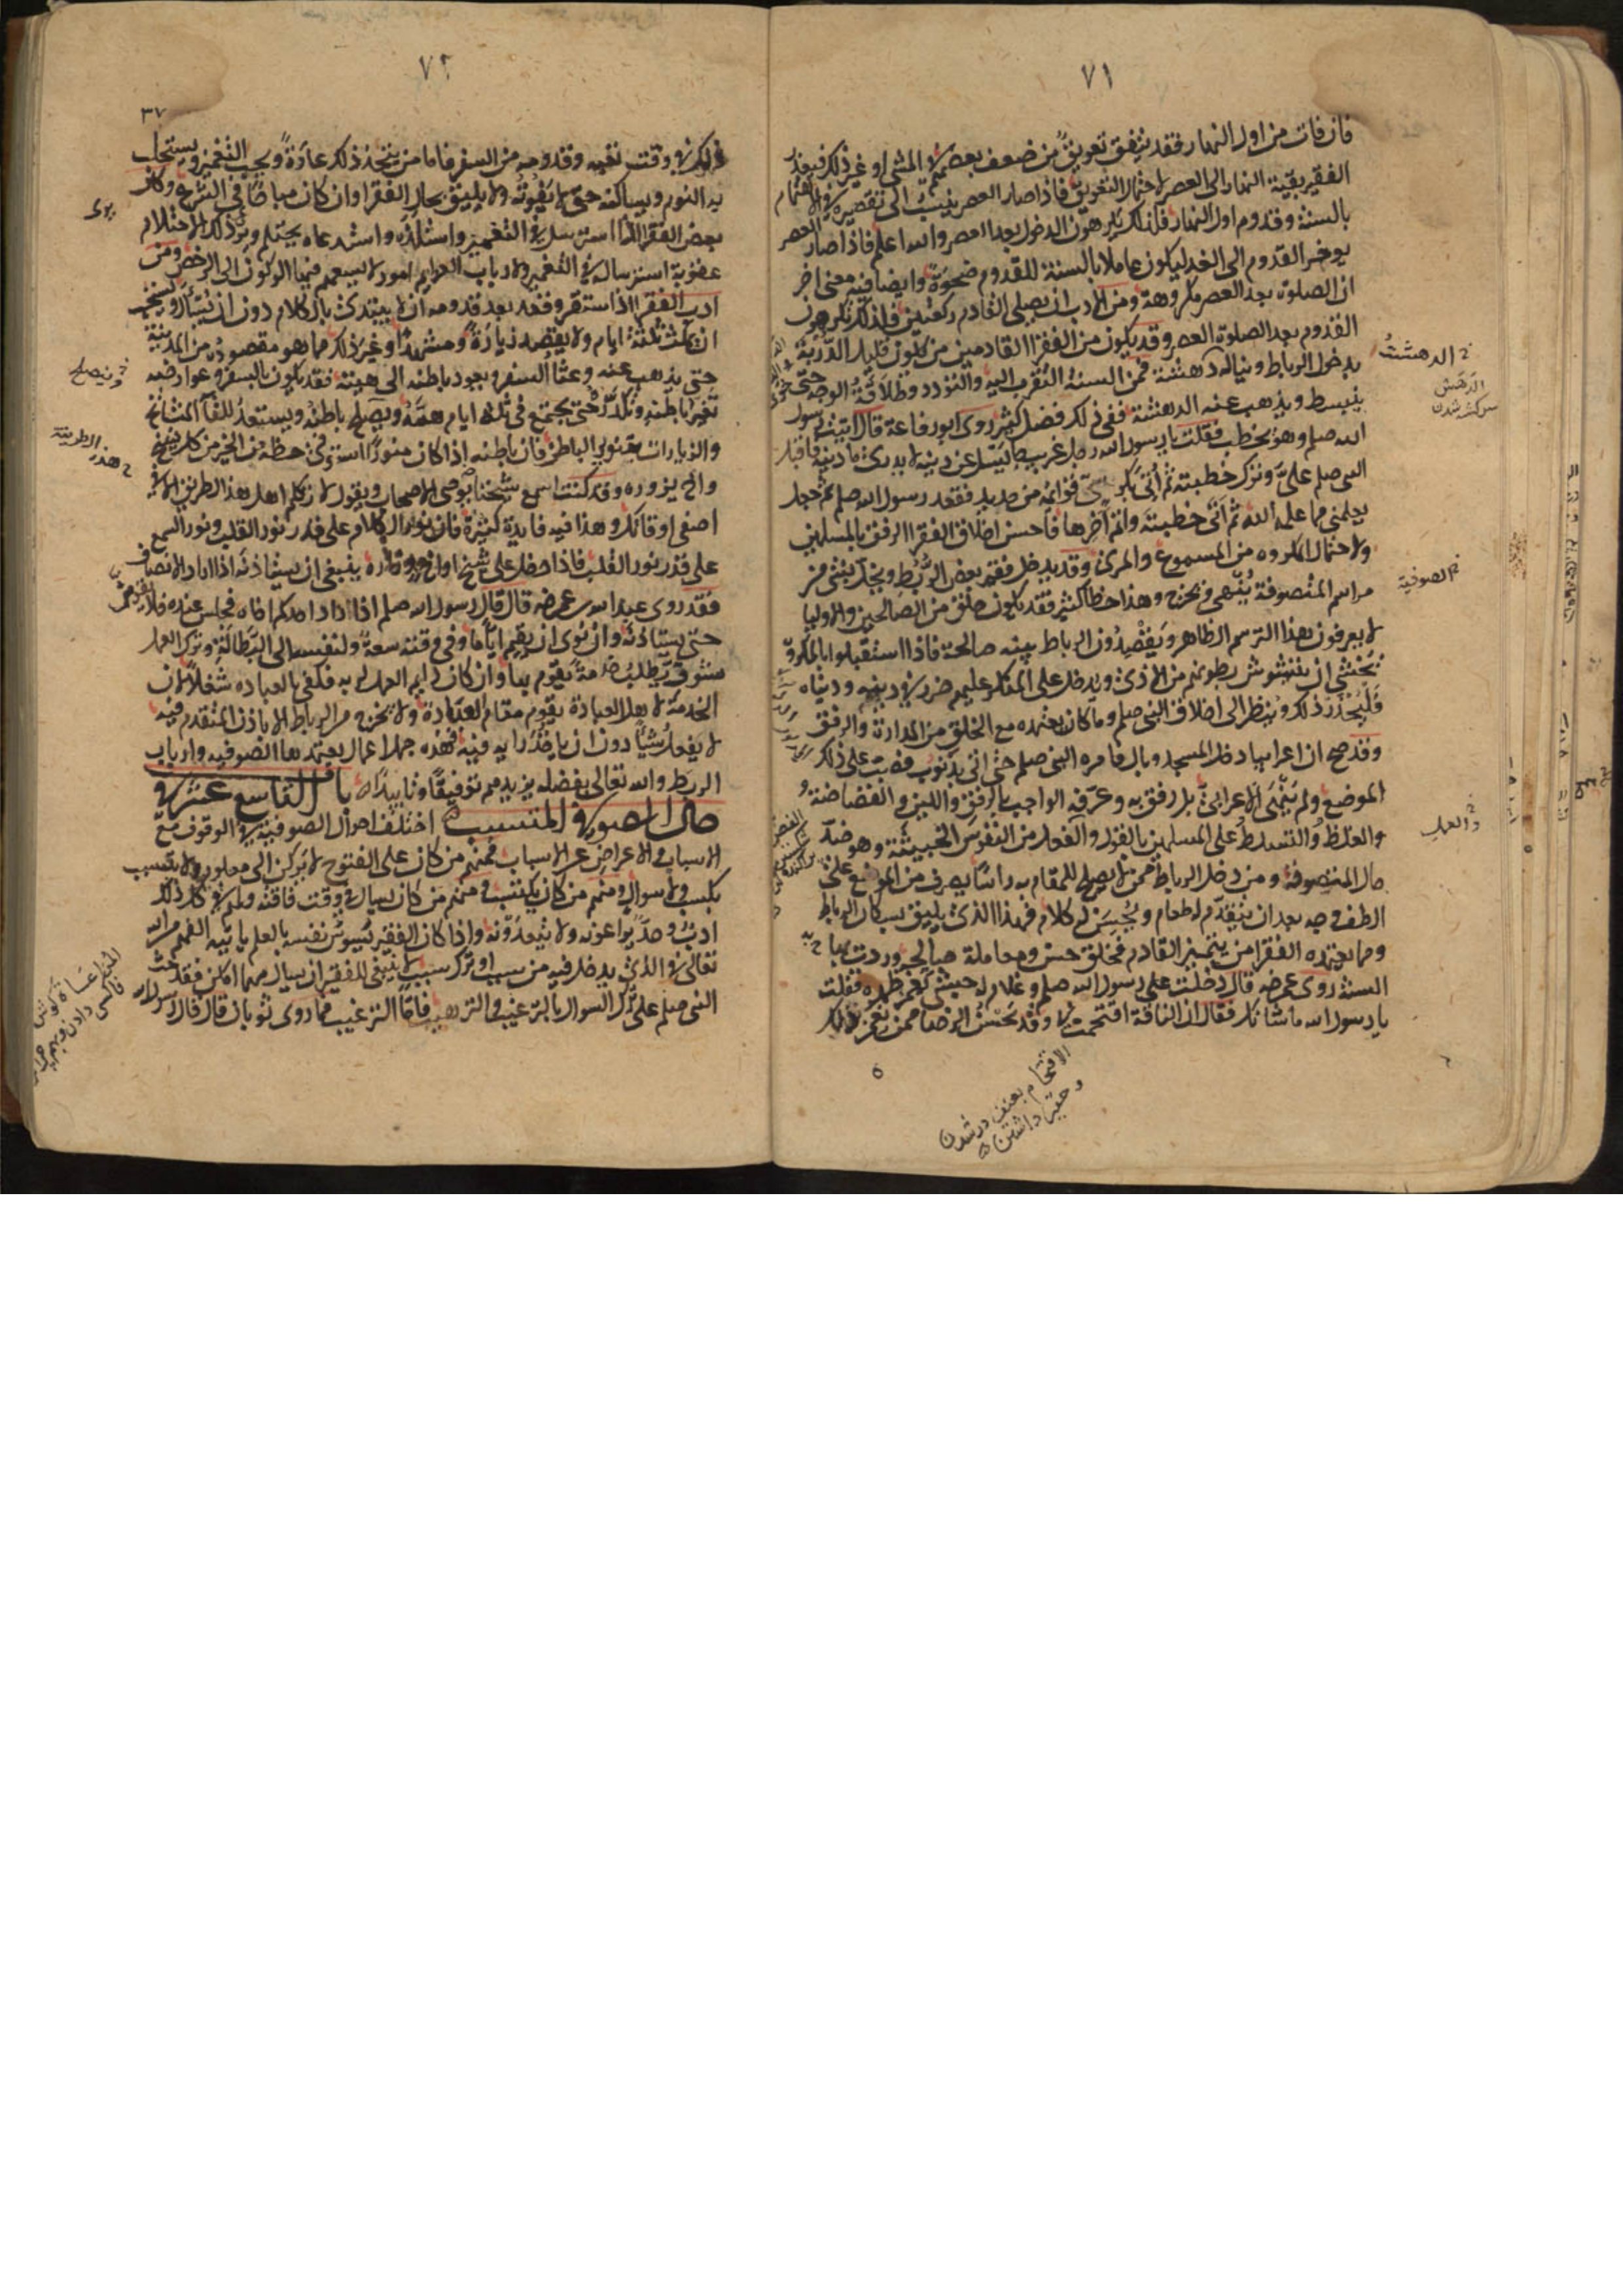 ٧١
فان فات من اول النهار فقد يتفق تعويق من ضعف بعضهم في المشي او غير ذلك فيعذر
الفقير بقية النهار الى العصر لاحتمال التعويق فاذا صار العصر ينسب الى تقصيره في الاهتمام
بالسنة وقدوم اول النهار فلذلك يكرهون الدخول بعد العصر والله اعلم فاذا صار العصر
يوخر القدوم الى الغد ليكون عاملا بالسنة للقدوم ضحوة وايضا فيه معنى اخر
ان الصلوة بعد العصر مكروهة ومن الادب ان يصلي القادم ركعتين فلذلك يكرهون
القدوم بعد الصلوة العصر وقد يكون من الفقرا القادمين من يكون قليل الدربة
بدخول الرباط ويناله دهشة فمن السنة التقرب اليه والتودد وطلاقة الوجه حتى
ينبسط ويذهب عنه الدهشة ففي ذلك فضل كثير روى ابو رفاعة قال اتيت رسول
الله صلم وهو يخطب فقلت يا رسول الله رجل غريب جا يسل عن دينه لا يدري ما دينه فاقبل
النبي صلم علي وترك خطبته ثم اتي بكرسي قوائمه من حديد فقعد رسول الله صلم ثم جعل
يعلمني مما علمه الله ثم اتى خطبته واتم اخرها فاحسن اخلاق الفقرا الرفق بالمسلمين
ولاحتمال المكروه من المسموع والمرئ وقد يدخل فقير بعض الربط ويخل بشئ من
مراسم المتصوفة ينهى ويخرج وهذا خطا كثير فقد يكون خلق من الصالحين والاوليا
لا يعرفون هذا الترسم الظاهر ويقصدون الرباط بنية صالحة فاذا استقبلوا بالمكروه
يخشى ان يتشوش بطونهم من الاذى ويدخل على المنكر عليهم ضرر في دينه ودنياه
فليحذر ذلك وينظر الى اخلاق النبي صلم وما كان يعتمده مع الخلق من المداراة والرفق
وقد صح ان اعرابيا دخل المسجد وبال فامره النبي صلم حتى اتى بذنوب فصبت على ذلك
الموضع ولم ينهر الاعرابي بل رفق به وعرفه الواجب بالرفق واللين والفضاضة و
والغلظ والتسلط على المسلمين بالقول والفعل من النفوس الخبيثة وهو ضد
حال المتصوفة ومن دخل الرباط ممن لا يصلح للمقام به راسا يصرف من الموضع على
الطف وجه بعد ان يتقدم له طعام ويحسن له كلام فهذا الذي يليق بسكان الرباط
ومما يعتمده الفقرا من يتميز القادم فخلق حسن ومعاملة صالحة وردت بها
السنة روى عمر رضه قال دخلت على رسول الله صلم وغلام له حبشي يغمز ظهره فقلت
يا رسول الله ما شانك فقال ان الناقة اقتحمت بي وقد يحسن الرضا ممن يغمز ذلك
الدهشت
الدهش
سركشته شدن
الصوفية
والعمل
الاقتحام بعنف درشدن
و حقير داشتن
٧٢
٣٧
ذلك في وقت تعبه وقدومه من السفر فاما من يتخذ ذلك عادة ويحب التغميز ويستجلب
به النوم ويساكنه حتى لا يفوته ولا يليق بحال الفقرا وان كان مباحا في الشرع وكان
بعض الفقرا اذا استرسل في التغميز واستلذه واستدعاه يحتلم ويرى ذلك الاحتلام
عقوبة استرساله في التغميز ولارباب العزايم امور لا يسعهم فيها الركون الى الرخص ومن
ادب الفقرا اذا استقر وقعد بعد قدومه ان لا يبتدئ بالكلام دون ان يسال ويستحب
ان يمكث ثلثة ايام ولا يقصد زيارة ومشهدا وغير ذلك مما هو مقصوده من المدينة
حتى يذهب عنه وعثا السفر ويعود باطنه الى هيئته فقد يكون بالسفر وعوارضه
تغير باطنه وتكدر حتى يجتمع في ثلثة ايام همه ويصلح باطنه ويستعد للقا المشائخ
والزيارات بتنوير الباطن فان باطنه اذا كان منورا استوفى حظه من الخير من كل شيخ
واخ يزوره وقد كنت اسمع شيخنا يوصي الاصحاب ويقول لا تكلم اهل هذا الطريق الا في
اصفى اوقاتك وهذا فيه فايدة كبيرة فان نور الكلام على قدر نور القلب ونور السمع
على قدر نور القلب فاذا دخل على شيخ او اخ وزاره ينبغي ان يستاذنه اذا اراد الانصراف
فقد روى عبد الله بن عمر رضه قال قال رسول الله صلم اذا زار احدكم اخاه فجلس عنده فلا يقومن
حتى يستاذنه وان نوى ان يقيم اياما وفي وقته سعة ولنفسه الى البطالة وترك العمل
تشوف يطلب خدمة يقوم بها وان كان دايم العمل لربه فكفى بالعبادة شغلا لان
الخدمة لاهل العبادة يقوم مقام العبادة ولا يخرج من الرباط الا باذن المتقدم فيه
لا يفعل شيئا دون ان ياخذ رايه فيه فهذه جمل اعمال يعتمدها الصوفيه وارباب
الربط والله تعالى بفضله يزيدهم توفيقا وتاييدا باب التاسع عشر في
حال الصوفي المتسبب اختلف احوال الصوفية في الوقوف مع
الاسباب والاعراض عن الاسباب فمنهم من كان على الفتوح لا يركن الى معلوم ولا يتسبب
بكسب ولا سوال ومنهم من كان يكتسب ومنهم من كان يسال في وقت فاقته ولهم في كل ذلك
ادب وحد يراعونه ولا يتعدونه واذا كان الفقير يسوس نفسه بالعلم ياتيه الفهم من الله
تعالى في الذي يدخل فيه من سبب او ترك سبب لا ينبغي للفقير ان يسال مهما امكن فقد حث
النبي صلم على ترك السوال بالترغيب والترهيب فاما الترغيب فما روى ثوبان قال قال رسول الله
ويصلح
هذه الطريقة